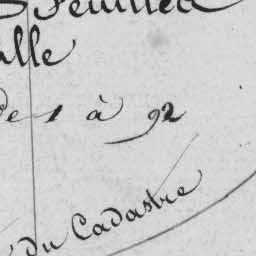 Feuilles
de 1 à 92
du Cadastre